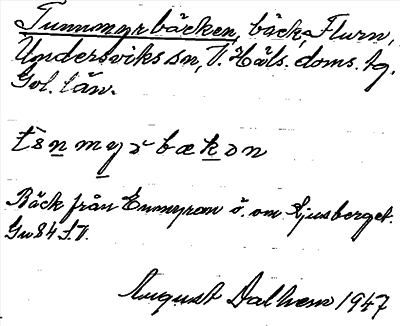 Tunnmyrbäcken, bäck, Flurn,
Undersviks sn, V. Häls. doms. hg.
Gvl. län.
Bäck från Enmyran ö. om Ljusberget.
Gu84 f.V.
August Dalhem 1947